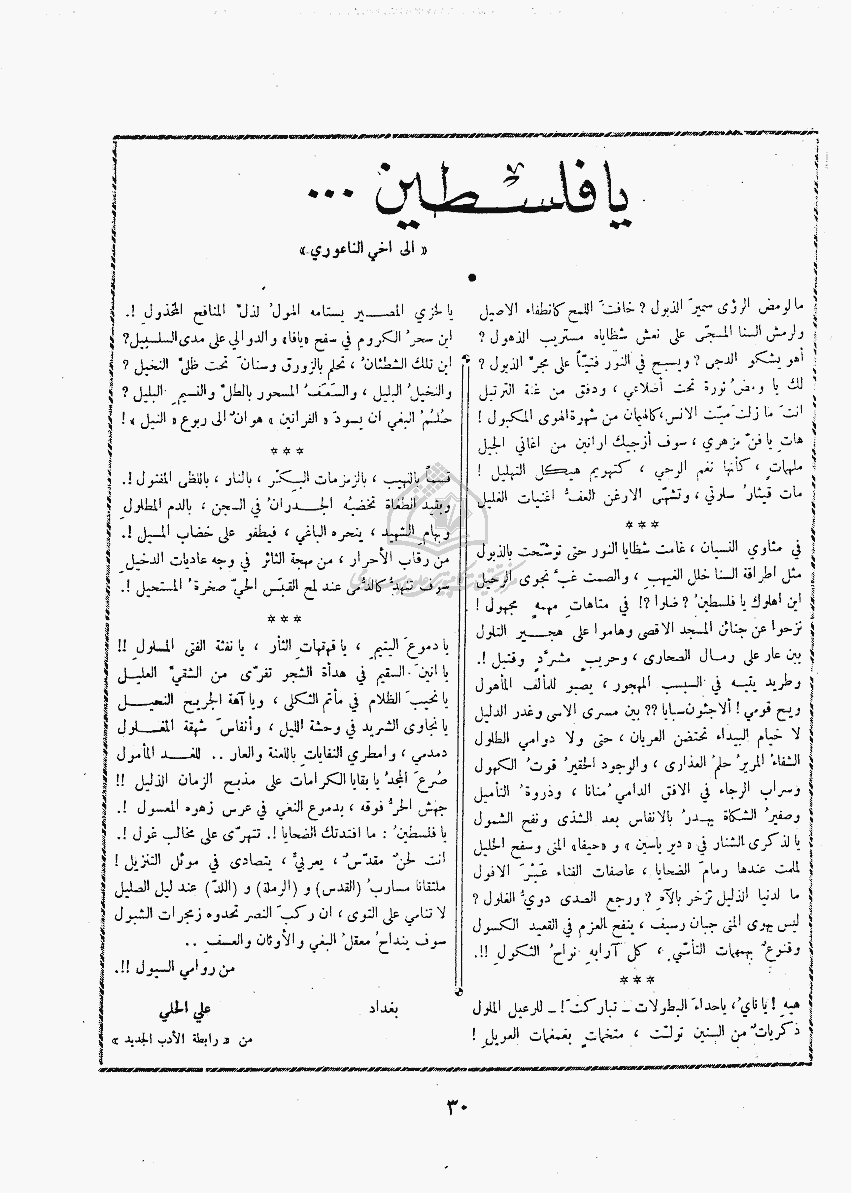 يا فلسطين ...
« الى اخي الناعوري »
ما لومض الرؤى سميرَ الذبول ? خافتَ اللمح كانطفاء الاصيل
ولرمش السنا المسجّى على نعش شظاياه مستريب الذهول ?
أهو يشكو الدجى ? ويسبح في النور فتيتاً على مجرّ الذبول ?
لك يا ومضُ ثورة تحت أضلاعي ، ودفق من غنة الترتيل
انت ما زلت ميّت الانس، كالهيمان من شهوة الهوى المكبول !
هات يا فنّ مزهري ، سوف أزجيك ارانين من اغاني الجيل
ملهماتٍ ، كأنها نغم الوحي ، كتهويم هيكل التهليل !
مات قيثار سلوتي ، وتشهّى الارغن العفُّ اغنيات الغليل
***
في مثاوي النسيان ، غامت شظايا النور حتى توشّحت بالذبول
مثل اطراقة السنا خلل الغيهب ، والصمت غبّ نجوى الرحيل
اين اهلوك يا فلسطينُ ? ضلوا ?! في متاهاتِ مهمهٍ مجهول !
نزحوا عن جنائن المسجد الاقصى وهاموا على هجـير التلول
بين عار على رمـال الصحارى ، وحريبٍ مشرّدٍ وقتيل !.
وطريد يتيه في السبسب المهجور ، يصبو للمألف المأهول
ويح قومي ! ألاجئون سبايا ?? بين مسرى الاسى وغدر الدليل
لا خيام البيداء تحتضن العريان ، حتى ولا دوامي الطلول
الشقاءُ المريرُ حلم العذارى ، والوجود الحقيرُ قوت الكهول
وسراب الرجاء في الافق الدامي مُنانا ، وذروة التأميل
وصفيرُ الشكاة يهدرُ بالانفاس بعد الشذى ونفح الشمول
يا لذكرى الشنار في « دير ياسين » و « حيفا » المنى وسفح الجليل
لملمت عندها رمامَ الضحايا ، عاصفات الفناء عَبْرَ الافول
ما لدنيا الذليل تزخر بالآه ? ورجع الصدى دويُّ الغلول ?
ليس يهوى المنى جبان رسيف ، ينفح العزم في القعيد الكسول
وقنوعٌ بهمهمات التأسّي ، كل آرابهِ نواحُ الثكول !!.
***
هيه ! يا نايُ ، يا حداءَ البطولات ـ تباركتَ ! ـ للرعيل الملول
ذكرياتٌ من السنين تولّت ، متخمات بغمغمات العويل !
يا لخزي المصـــير يستامه الهولُ لذلّ المنافح المخذول !.
اين سحرُ الكروم في سفح « يافا » والدوالي على مدى السلسبيل ?
اين تلك الشطئانُ ، تحلم بالزورق وسنانَ تحت ظلّ النخيل ?
والنخيل البليل ، والسَعَفُ المسحور بالطلّ والنسيم البليل ?
حُلُمُ البغي ان يسودَ « الفراتين » هوانٌ الى ربوع « النيل » !
***
قسماً باللهيب ، بالزمزمات البِكرِ ، بالنار ، باللظى المفتول !.
وبقيد الطغاة تخضبُه الجـدران في السجن ، بالدم المطلول
وبهام الشهيد ، ينحره الباغي ، فيطفو على خضاب المسيل !.
من رقاب الأحرار ، من مهجة الثائر في وجه عاديات الدخيل
سوف تنهدّ كالدمى عند لمح القبَس الحيّ صخرةُ المستحيل !.
***
يا دموعَ اليتيم ، يا قهقهاتِ الثأر ، يا نفثة الفتى المسلول !!
يا انينَ السقيم في هدأة الشجو تفرّى من الشقيّ العليل
يا نحيبَ الظلام في مأتم الثكلى ، ويا آهة الجريح النحيـــل
يا نجاوى الشريد في وحشة الليل ، وأنفاسَ شهقة المغــلول
دمدمي ، وامطري النفاياتِ باللعنة والعار .. للغــد المأمول
صُرعَ المجدُ يا بقايا الكرامات على مذبح الزمان الذليل !!
جهش الحرُّ فوقه ، بدموع النعي في عرس زهوه المعسول !.
يا فلسطينُ : ما افتدتك الضحايا !. تتهرّى على مخالب غول !.
أنت لحنٌ مقدّسٌ ، يعربيٌّ ، يتصادى في موئل التنزيل !
ملتقانا مساربُ ( القدس ) و ( الرملة ) و ( اللدّ ) عند ليل الصليل
لا تنامي على التوى ، ان ركبَ النصر تحدوه زمجرات الشبول
سوف ينداحُ معقلُ البغي والأوثان والعسف ..
من روامي السيول !!.
بغداد
علي الحلي
من « رابطة الأدب الجديد »
٣٠